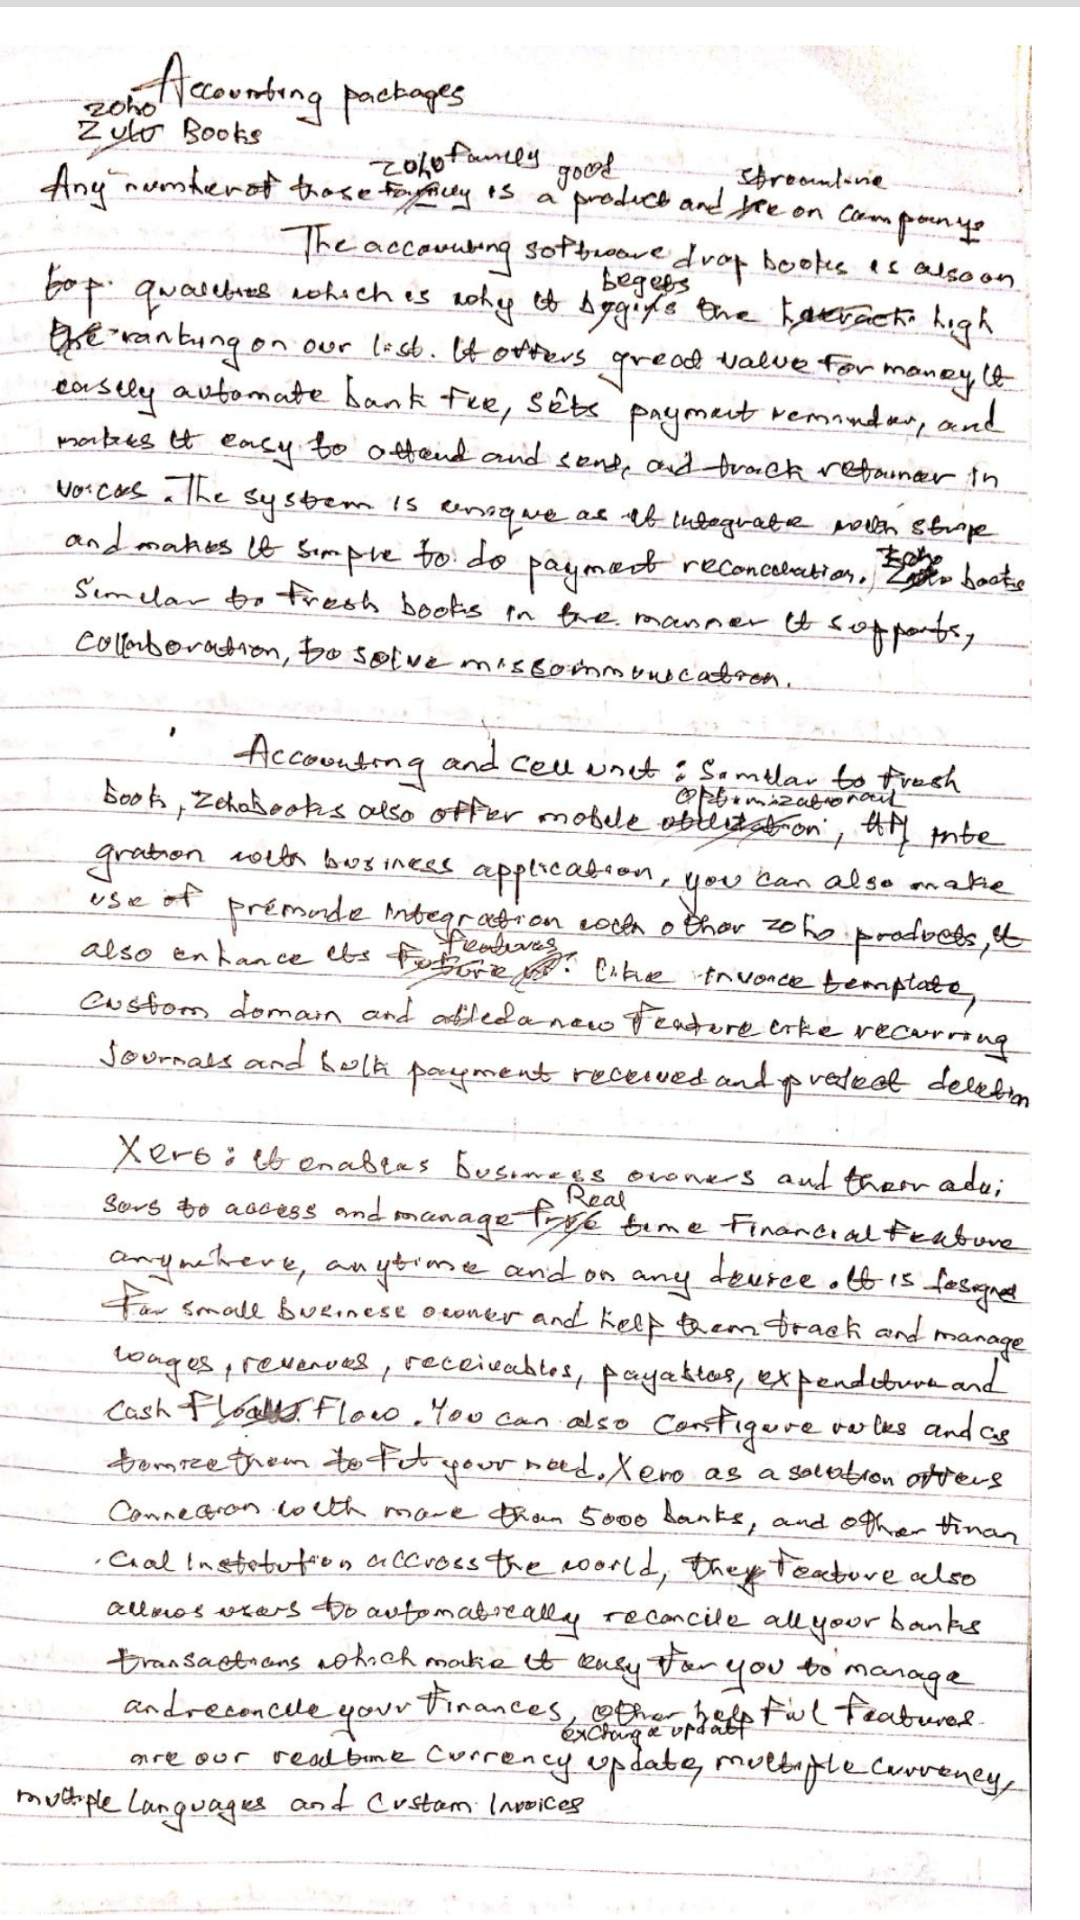 Accounting packages
zoho
Zulo Books
zoho family good streamline
Any number of those is a product and on companys
The accounting software drop books is also on
begets
top. qualities which is why it begins the high
the ranking on our list. It offers great value for money It
easily automate bank fee, sets payment reminder, and
makes it easy to attend and send, and track retainer in
voices. The system is unique as it integrate with stripe
zoho
and makes it simple to do payment reconcolation. books
Similar to fresh books in the manner it supports,
collaboration, to solve misscommunication.
Accounting and cell unit : Similar to fresh
optimizational
book, Zohobooks also offer mobile, API inte
gration with business application, you can also make
use of premade integration with other zoho products, it
features
also enhance its like invoice template,
custom domain and added a new feature like recurring
Journals and bulk payment received and project deletion
Xero : it enables business owners and their advi
Real
sors to access and manage time Financial feature
anywhere, anytime and on any device. It is designed
for small business owner and help them track and manage
wages, revenues, receivables, payables, expenditure and
cash Flow. You can also configure rules and cus
tomize them to fit your need. Xero as a solution offers
Connection with more than 5000 banks, and other finan
cial institution accross the world, they feature also
allows users to automatically reconcile all your banks
transactions which make it easy for you to manage
and reconcile your finances, other helpful features
exchange update
are our realtime currency update, multiple currency,
multiple languages and custom Invoices